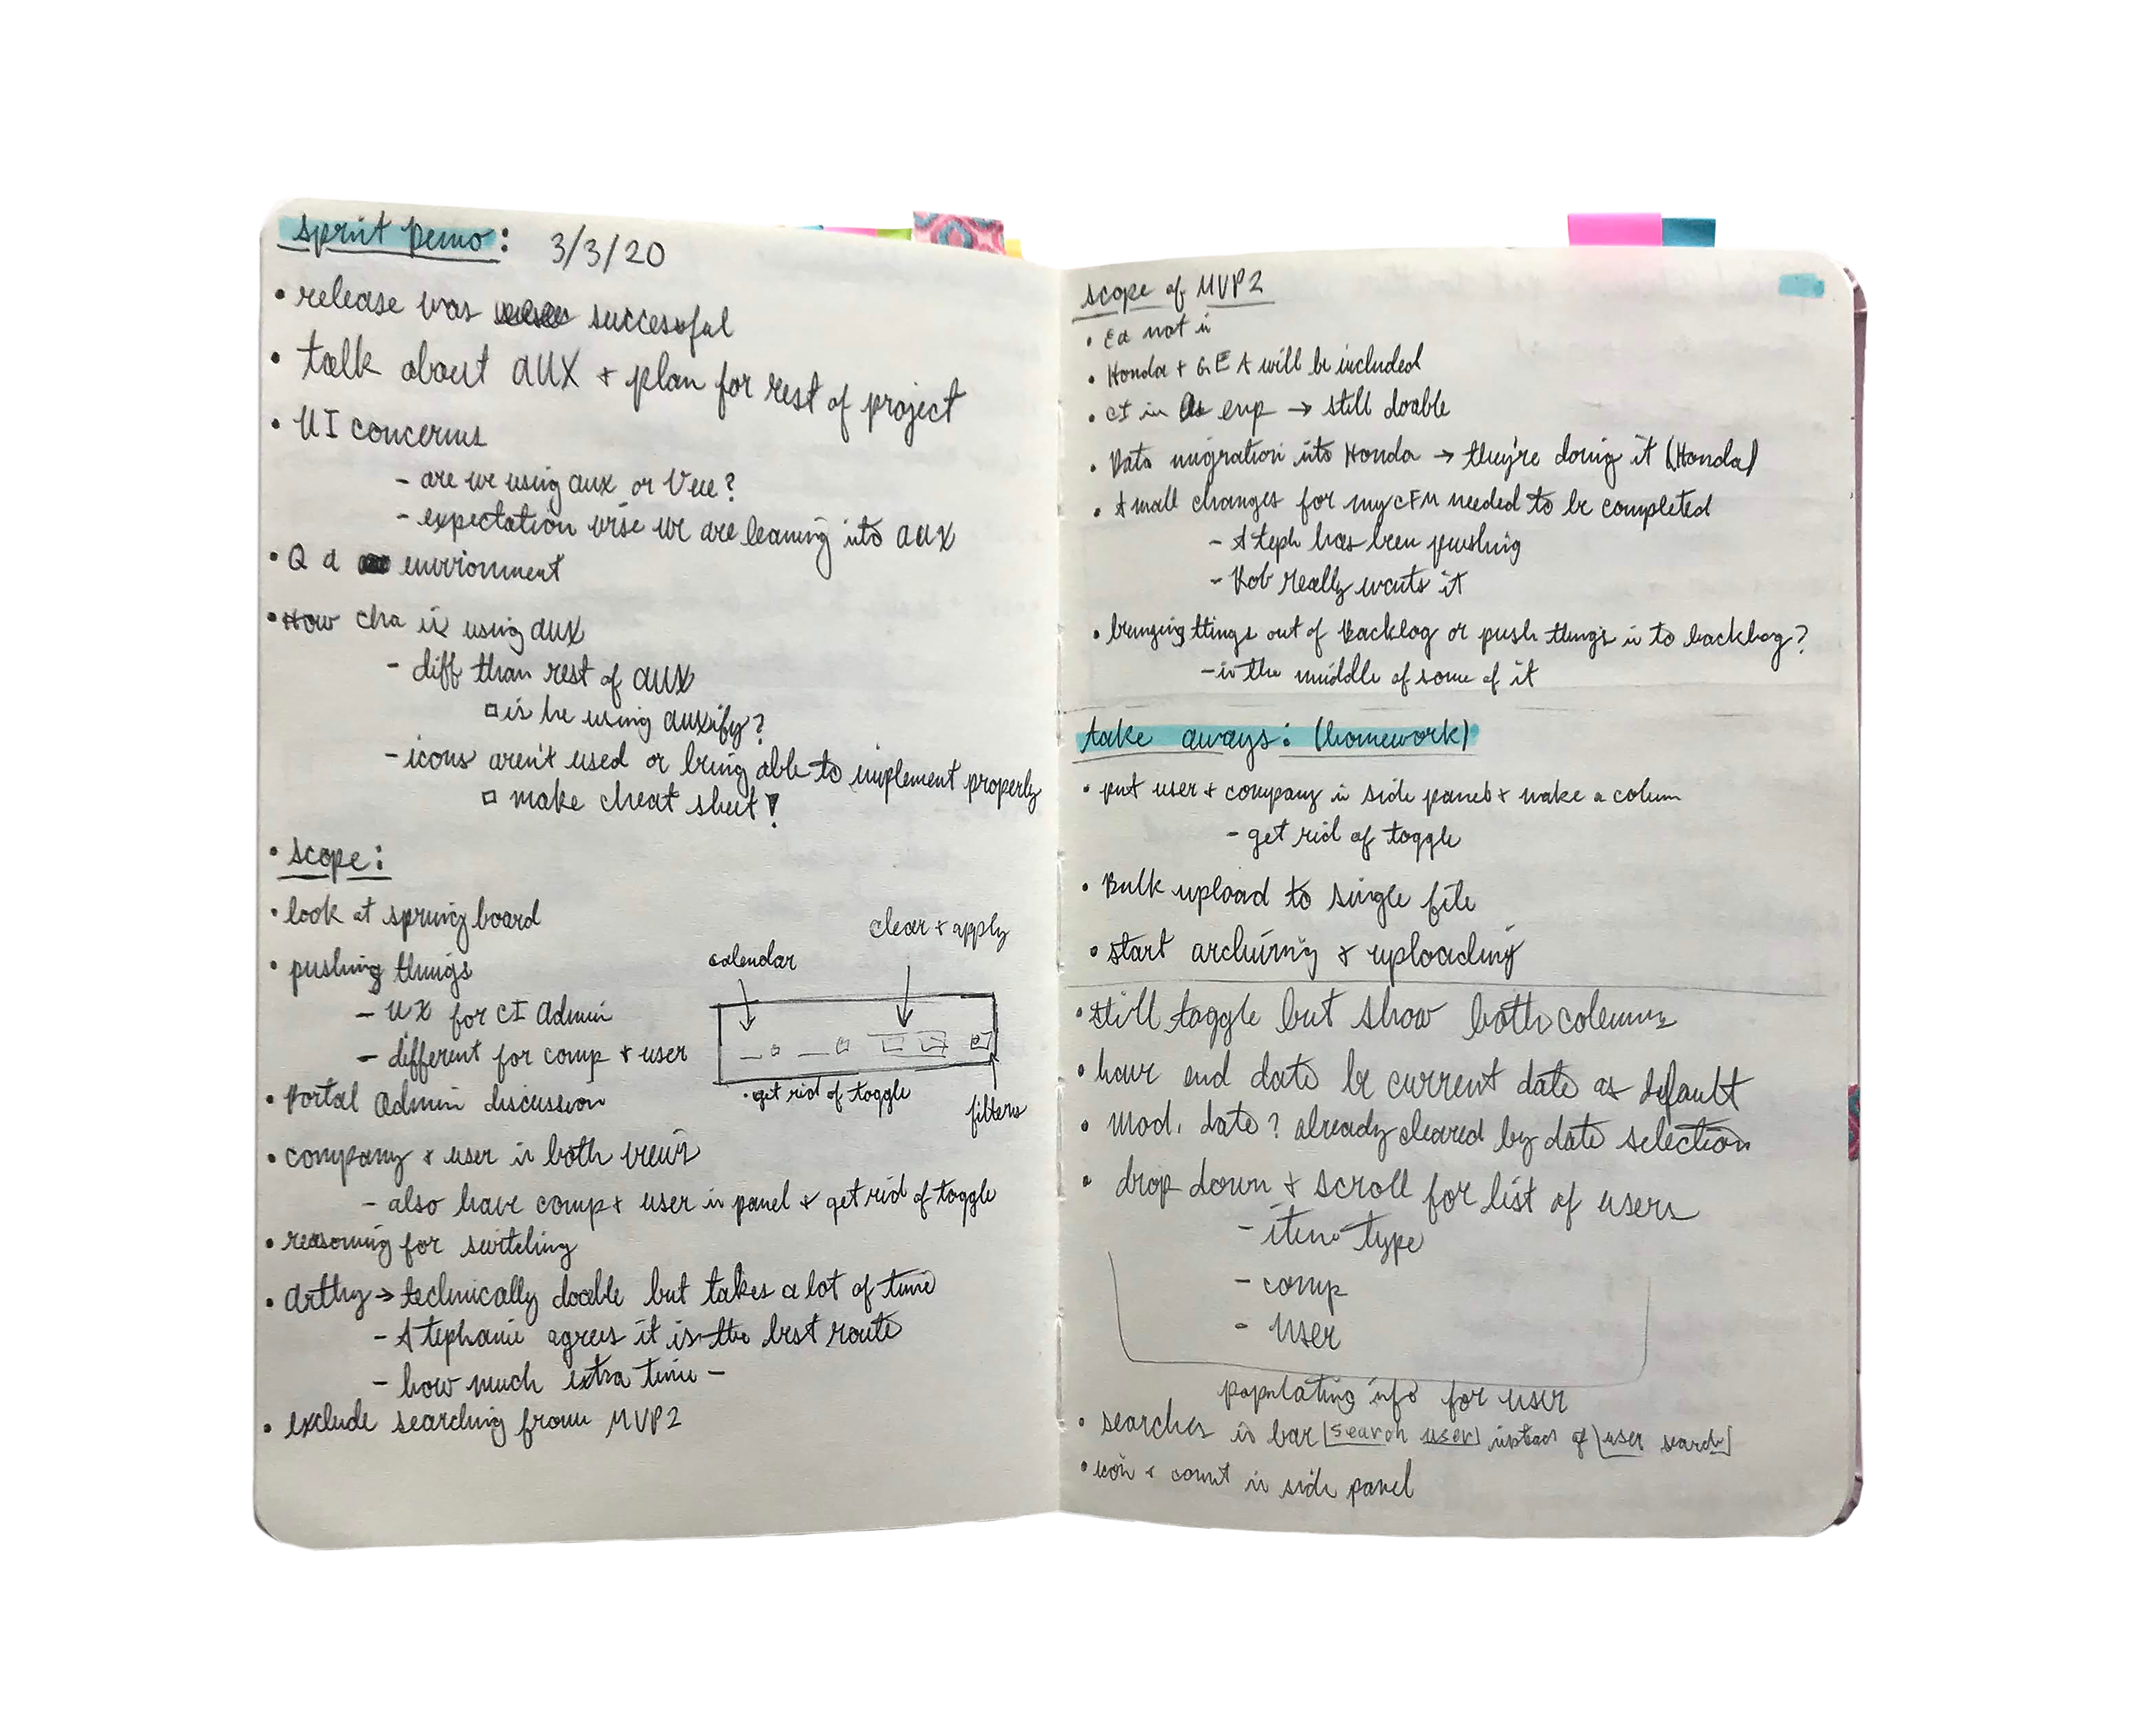 Sprint Demo: 3/3/20
• release was successful
• talk about AUX + plan for rest of project
• UI concerns
- are we using aux or Vue?
- expectation wise we are leaning into aux
• Q a environment
• How cha is using aux
- diff than rest of aux
□ is he using auxify?
- icons aren't used or being able to implement properly
□ make cheat sheet!
• Scope:
• look at springboard
• pushing things
- UX for CI Admin
- different for comp + user
calendar
clear + apply
• get rid of toggle
filters
• Portal Admin discussion
• company + user in both views
- also have comp + user in panel + get rid of toggle
• reasoning for switching
• Arthy → technically doable but takes a lot of time
- Stephanie agrees it is the best route
- how much extra time -
• exclude searching from MVP2
scope of MVP2
• Ea not in
• Honda + GEA will be included
• CI in exp → still doable
• Data migration into Honda → they're doing it (Honda)
• Small changes for myCFM needed to be completed
- Steph has been pushing
- Rob really wants it
• bringing things out of backlog or push things in to backlog?
- in the middle of some of it
take aways: (homework)
• put user + company in side panel + make a column
- get rid of toggle
• Bulk upload to single file
• start archiving + uploading
• still toggle but show both columns
• have end date be current date as default
• Mod. date? already cleared by date selection
• drop down + scroll for list of users
- item type
- comp
- user
populating info for user
• searches in bar [search user] instead of [user search]
• icon + count in side panel